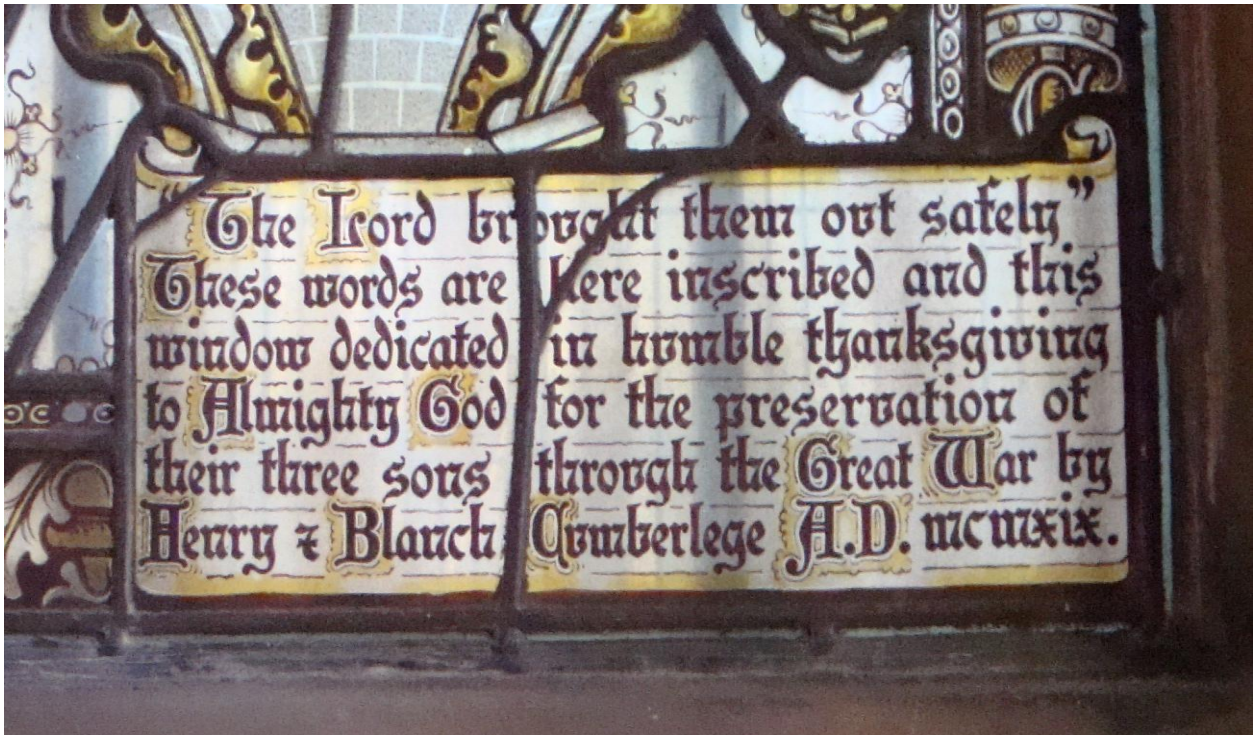 The Lord brought them out safely”
These words are here inscribed and this
window dedicated in humble thanksgiving
to Almighty God for the preservation of
their three sons through the Great War by
Henry & Blanch Cumberlege A.D. mcmxix.